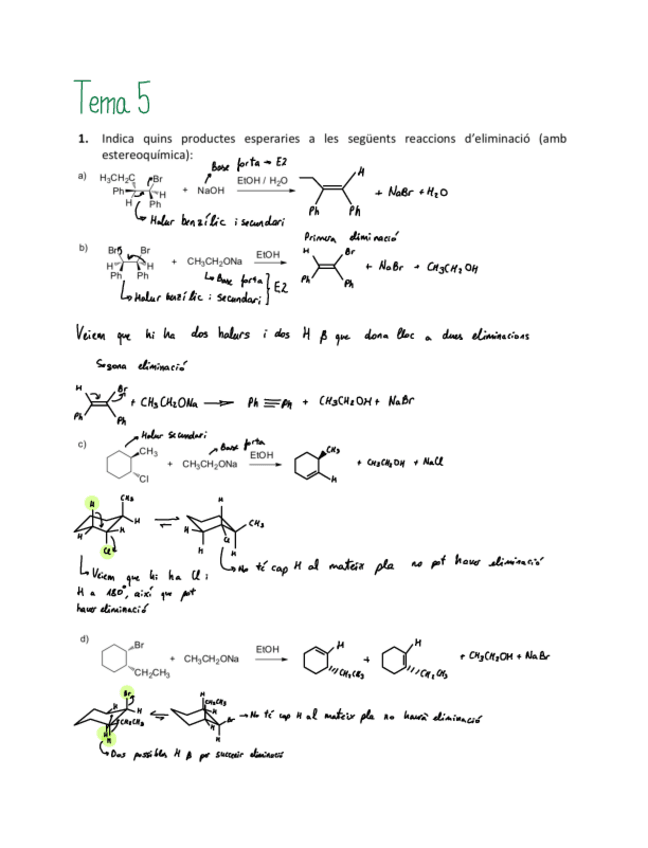 Tema 5
1. Indica quins productes esperaries a les següents reaccions d'eliminació (amb
estereoquímica):
Base forta → E2
a) H₃CH₂C Br
Ph H
H Ph
+ NaOH
EtOH / H₂O
H
Ph Ph
+ NaBr + H₂O
Halur benzílic i secundari
Primera eliminació
b) Br Br
H H
Ph Ph
+ CH₃CH₂ONa
EtOH
H Br
Ph Ph
+ NaBr + CH₃CH₂OH
Base forta
Halur benzílic i secundari
E2
Veiem que hi ha dos halurs i dos H β que dona lloc a dues eliminacions
Segona eliminació
H Br
Ph Ph
+ CH₃CH₂ONa → Ph ≡ Ph + CH₃CH₂OH + NaBr
Halur secundari
Base forta
c) CH₃
Cl
+ CH₃CH₂ONa
EtOH
CH₃
H
+ CH₃CH₂OH + NaCl
H CH₃
H H H
Cl
H
CH₃
H Cl
H H
Veiem que hi ha Cl i
H a 180°, així que pot
haver eliminació
No té cap H al mateix pla no pot haver eliminació
d) Br
CH₂CH₃
+ CH₃CH₂ONa
EtOH
H
CH₂CH₃
+
H
CH₂CH₃
+ CH₃CH₂OH + NaBr
Br
H H
CH₂CH₃
H
H
CH₂CH₃
Br
H
No té cap H al mateix pla no haurà eliminació
Dos possibles H β per succeir eliminació